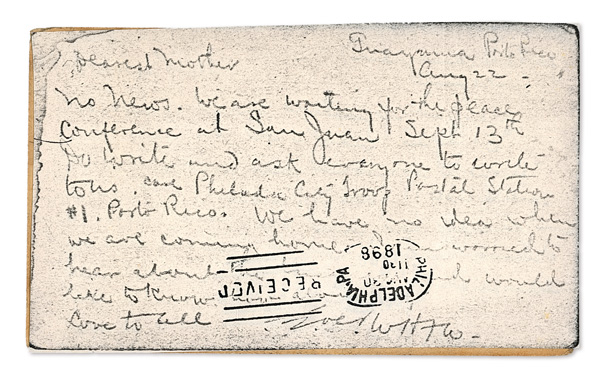 Guayama Porto Rico
Aug 22.
Dearest Mother
No News. We are waiting for the peace
Conference at San Juan Sept 13th
Do write and ask everyone to write
to us. care Philada City Troop Postal Station
#1. Porto Rico. We have no idea when
we are coming home. worried to
hear about would
like to know
Love to all
RECEIVED
PHILADELPHIA PA
1130
1898